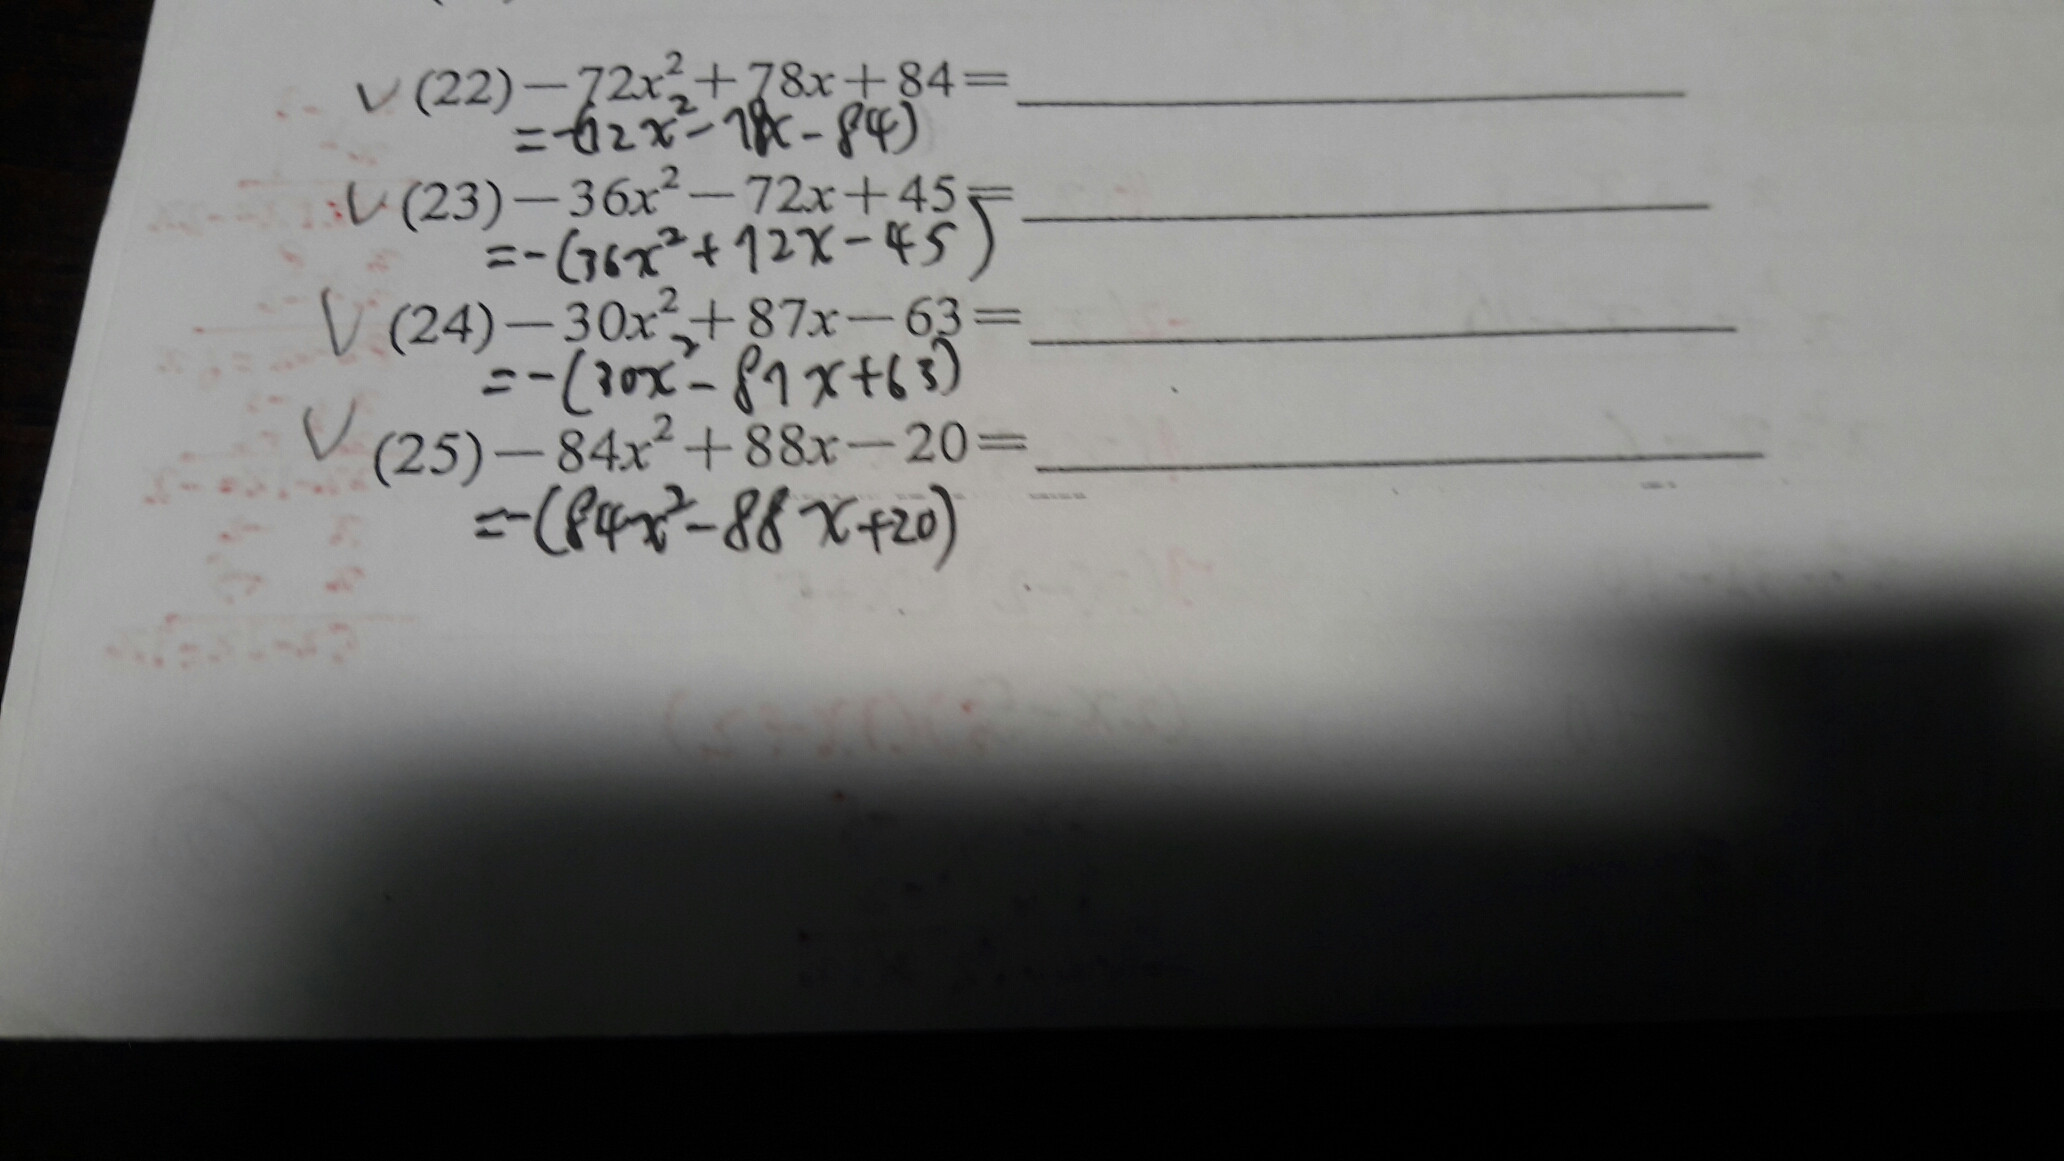 (22) −72x²+78x+84=
=-(72x²-78x-84)
(23) −36x²−72x+45=
=-(36x²+72x-45)
(24) −30x²+87x−63=
=-(30x²-87x+63)
(25) −84x²+88x−20=
=-(84x²-88x+20)